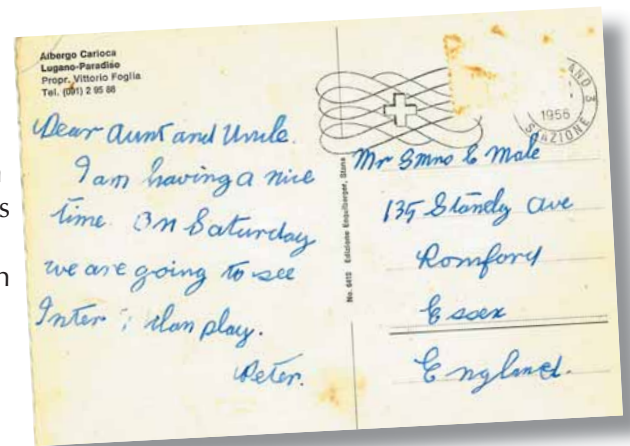 Albergo Carioca
Lugano-Paradiso
Propr. Vittorio Foglia
Tel. (091) 2 95 88
Dear Aunt and Uncle.
I am having a nice
time. On Saturday
we are going to see
Inter : play.
Peter.
No. 6410 Edizione Engelberger, Stans
1956
STAZIONE
Mr Male
135 Ave
Romford
Essex
England.
s
n